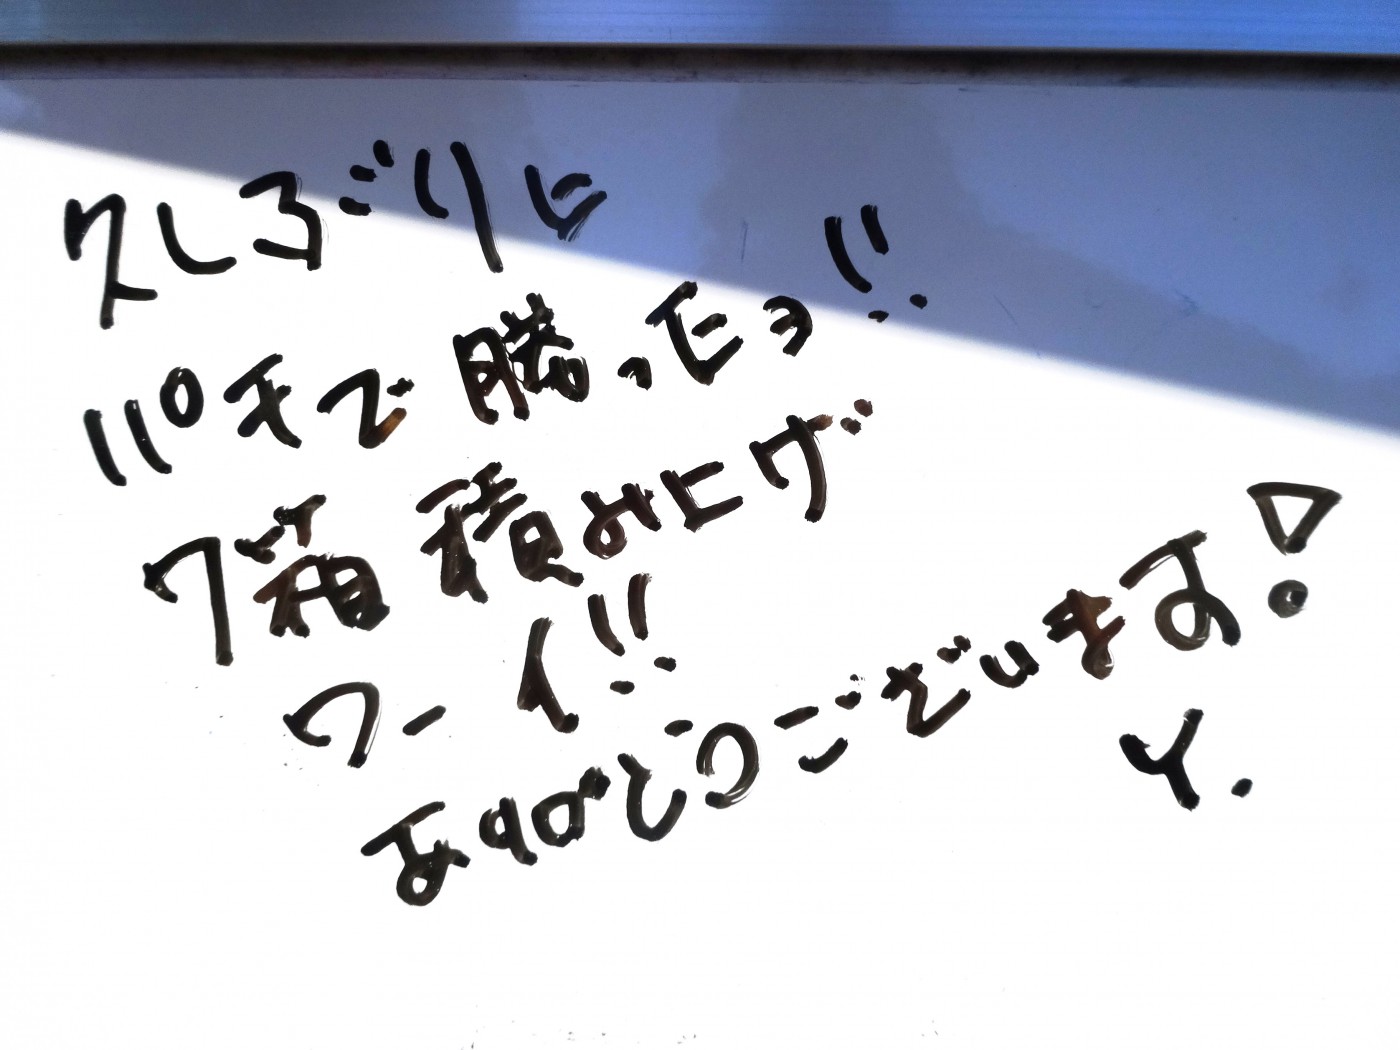 久しぶりに
パチで勝ったョ!!
7箱積み上ゲ
ワーイ!!
ありがとうございます!
Y.